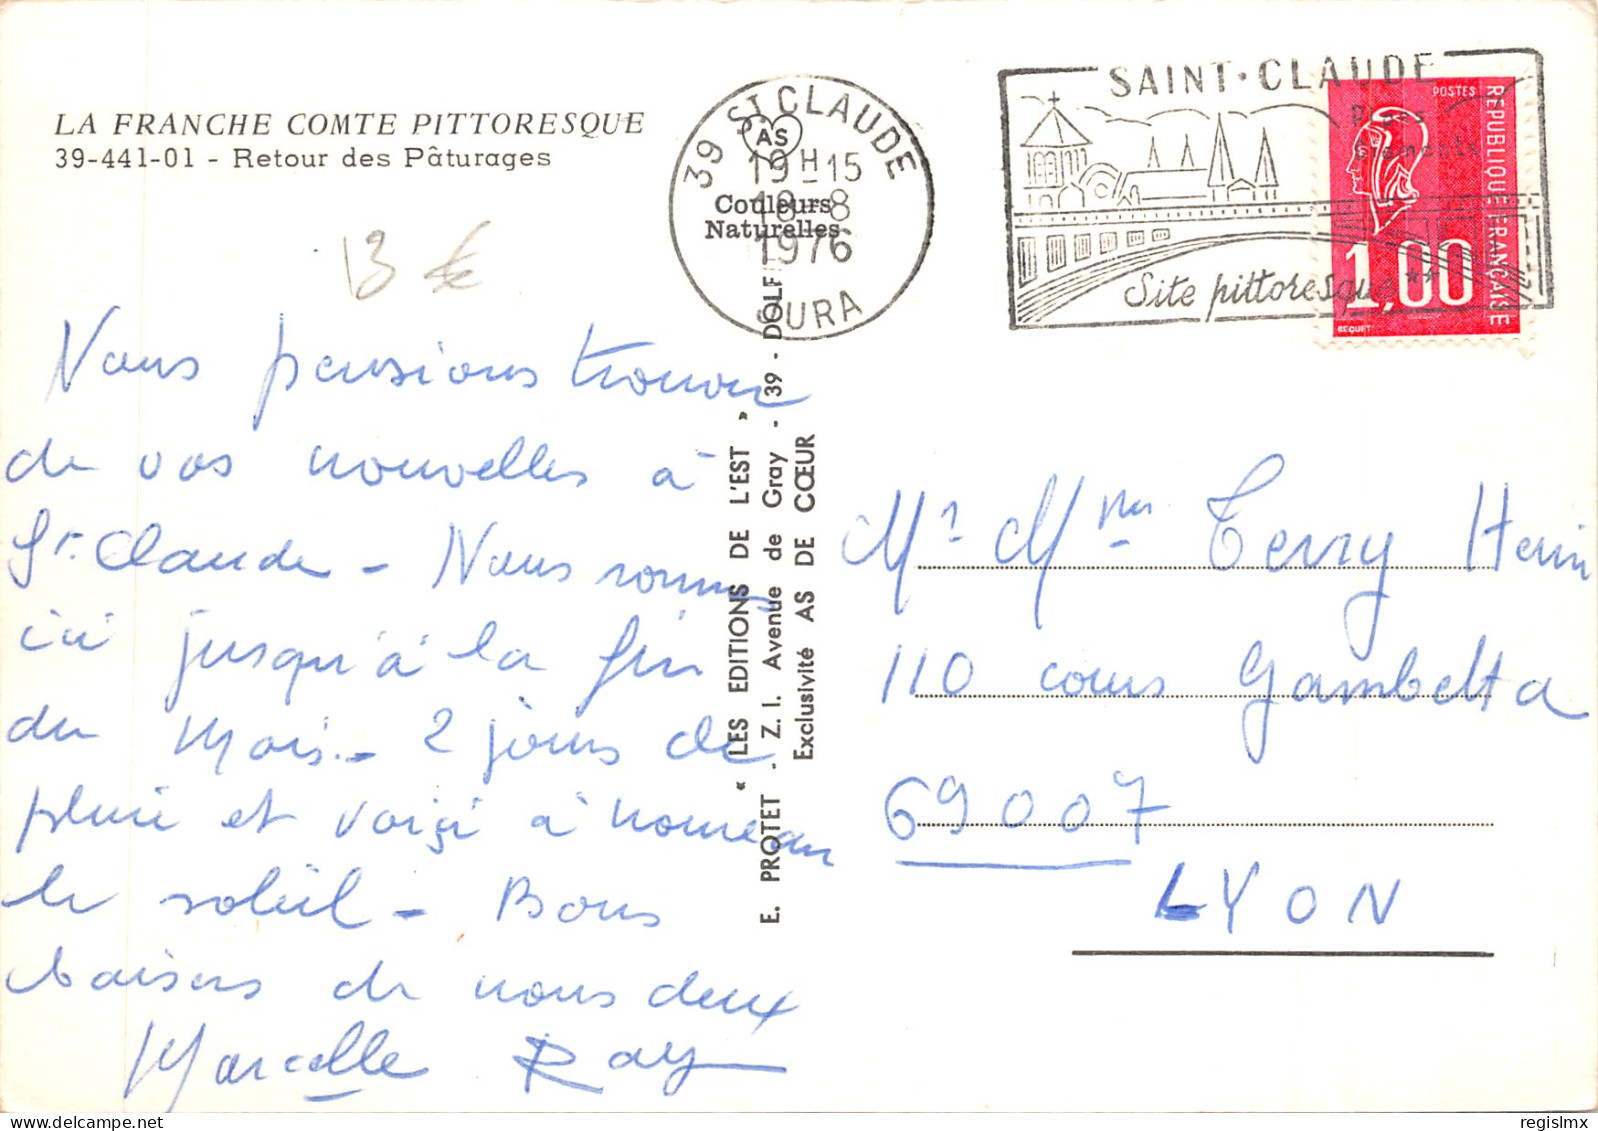 LA FRANCHE COMTE PITTORESQUE
39-441-01 - Retour des Pâturages
13 €
39 ST CLAUDE
AS
19 H 15
18 - 8
1976
JURA
Couleurs
Naturelles
SAINT-CLAUDE
Pipes
Diamants
Site pittoresque **
POSTES
REPUBLIQUE FRANÇAISE
1,00
BEQUET
Nous pensions trouver
de vos nouvelles à
St. Claude - Nous sommes
ici jusqu'à la fin
du mois - 2 jours de
pluie et voiçi à nouveau
le soleil - Bons
baisers de nous deux
Marcelle Ray
« LES EDITIONS DE L'EST »
E. PROTET - Z. I. Avenue de Gray - 39 - DOLE
Exclusivité AS DE CŒUR
Mr Mme Terry Henri
110 cours Gambetta
69007
LYON
regislmx
delcampe.net